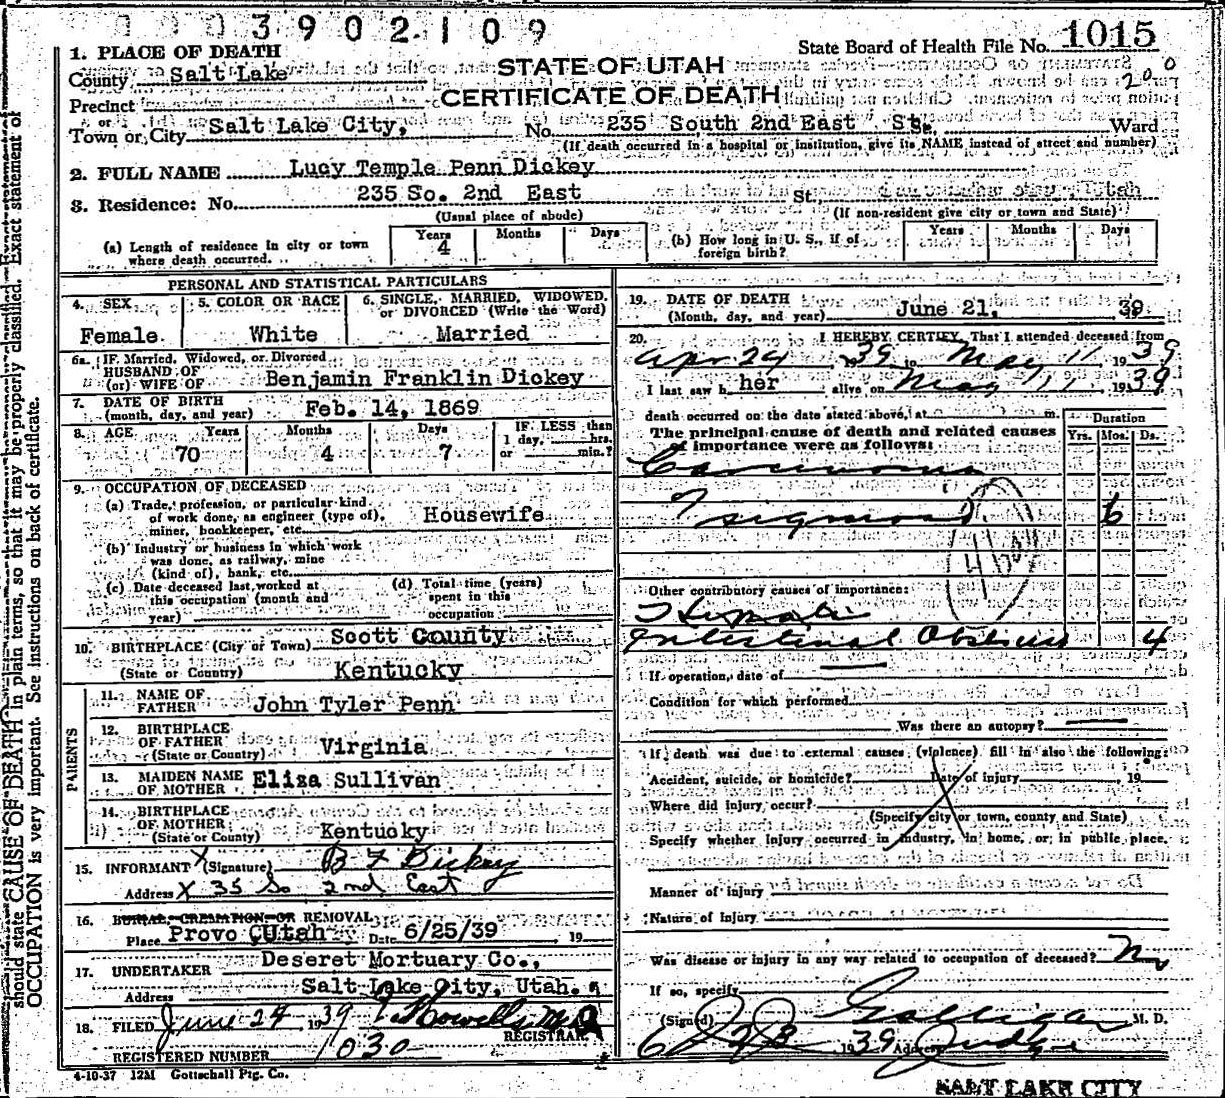 0 0 3 9 0 2 1 0 9
State Board of Health File No. 1015
200
STATE OF UTAH
CERTIFICATE OF DEATH
1. PLACE OF DEATH
County Salt Lake
Precinct
or
Town or City Salt Lake City, No. 235 South 2nd East St. St. Ward
(If death occurred in a hospital or institution, give its NAME instead of street and number)
2. FULL NAME Lucy Temple Penn Dickey
3. Residence: No. 235 So. 2nd East St.
(Usual place of abode) (If non-resident give city or town and State)
(a) Length of residence in city or town where death occurred. Years 4 Months Days
(b) How long in U. S., if of foreign birth? Years Months Days
PERSONAL AND STATISTICAL PARTICULARS
4. SEX Female
5. COLOR OR RACE White
6. SINGLE, MARRIED, WIDOWED, or DIVORCED (Write the Word) Married
6a. IF Married, Widowed, or Divorced
HUSBAND OF
(or) WIFE OF Benjamin Franklin Dickey
7. DATE OF BIRTH
(month, day, and year) Feb. 14, 1869
8. AGE Years 70 Months 4 Days 7 IF LESS than 1 day, hrs. or min.?
9. OCCUPATION OF DECEASED
(a) Trade, profession, or particular kind
of work done, as engineer (type of),
miner, bookkeeper, etc. Housewife
(b) Industry or business in which work
was done, as railway, mine
(kind of), bank, etc.
(c) Date deceased last worked at
this occupation (month and
year)
(d) Total time (years)
spent in this
occupation
10. BIRTHPLACE (City or Town) Scott County
(State or Country) Kentucky
PARENTS
11. NAME OF
FATHER John Tyler Penn
12. BIRTHPLACE
OF FATHER
(State or Country) Virginia
13. MAIDEN NAME
OF MOTHER Eliza Sullivan
14. BIRTHPLACE
OF MOTHER
(State or County) Kentucky
15. INFORMANT X (Signature) B F Dickey
Address X 35 So 2nd East
16. BURIAL, CREMATION, OR REMOVAL
Place Provo Utah Date 6/25/39, 19
17. UNDERTAKER Deseret Mortuary Co.,
Address Salt Lake City, Utah.
18. FILED June 24 1939 Howells M.D.
REGISTRAR.
REGISTERED NUMBER 1030
4-10-37 12M Gottschall Ptg. Co.
19. DATE OF DEATH
(Month, day, and year) June 21, 39
20. I HEREBY CERTIFY, That I attended deceased from
Apr 24 1939 to May 11 1939
I last saw h her alive on May 11 1939
death occurred on the date stated above, at m.
The principal cause of death and related causes
of importance were as follows:
Duration
Yrs. Mos. Ds.
Carcinoma
sigmoid 6
Other contributory causes of importance:
Intestinal 4
If operation, date of
Condition for which performed
Was there an autopsy?
If death was due to external causes (violence) fill in also the following:
Accident, suicide, or homicide? Date of injury, 19
Where did injury occur?
(Specify city or town, county and State)
Specify whether injury occurred in industry, in home, or in public place.
Manner of injury
Nature of injury
Was disease or injury in any way related to occupation of deceased? No
If so, specify
(Signed) M. D.
6 1939 Address Judge
SALT LAKE CITY
should state CAUSE OF DEATH in plain terms, so that it may be properly classified. Exact statement of
OCCUPATION is very important. See instructions on back of certificate.